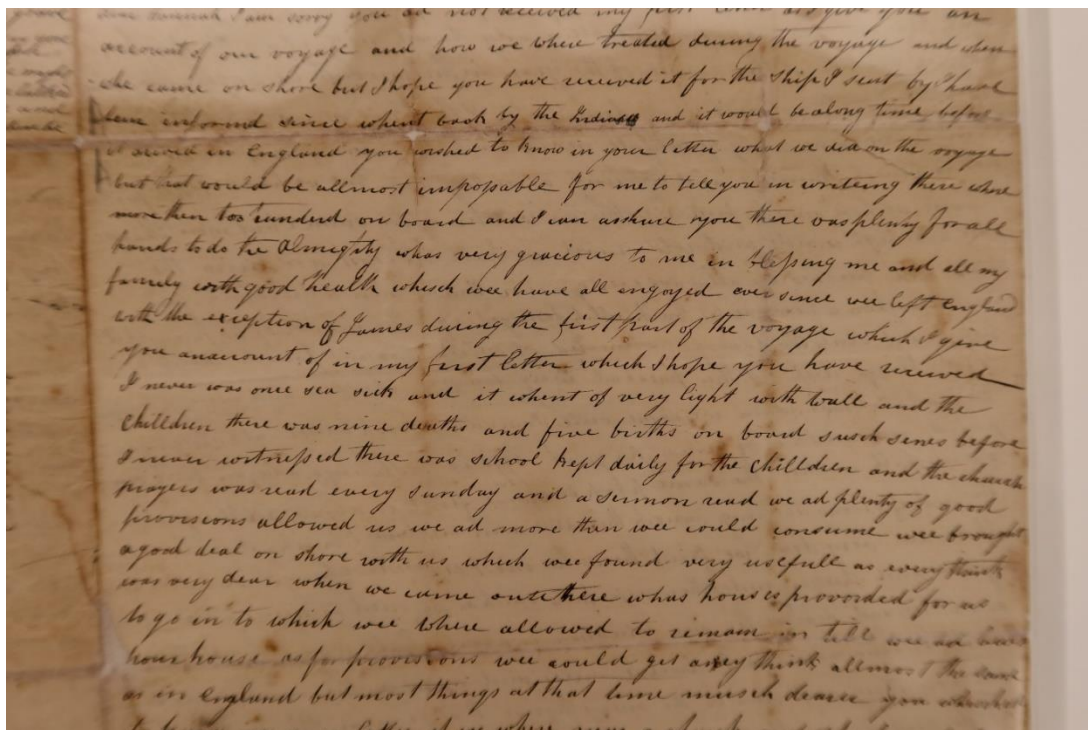 I am sorry you ad not received my first give you an
account of our voyage and how we where treated during the voyage and when
she came on shore but I hope you have received it for the ship I sent by I have
informd since whent back by the and it would be along time before
it arived in England you wished to know in your letter what we did on the voyage
but that would be allmost impossable for me to tell you in writeing there where
more then too hunderd on board and I can ashure you there was plenty for all
hands to do the Almighty whas very gracious to me in blessing me and all my
family with good health whisch wee have all engoyed ever since wee left england
with the exception of James during the first part of the voyage which I give
you anacount of in my first letter which I hope you have received
I never was once sea sick and it whent of very light with and the
Children there was nine deaths and five births on board susch senes before
I never witnessed there was school kept daily for the Chilldren and the church
prayers was read every sunday and a sermon read we ad plenty of good
provisions allowed us we ad more than wee could consume wee brought
a good deal on shore with us which wee found very usefull as every think
was very dear when we came there whas houses provorded for us
to go in to which wee where allowed to remain in till wee ad
house as for provisions wee could get aney think allmost the same
as in England but most things at that time musch dearer you
letter where